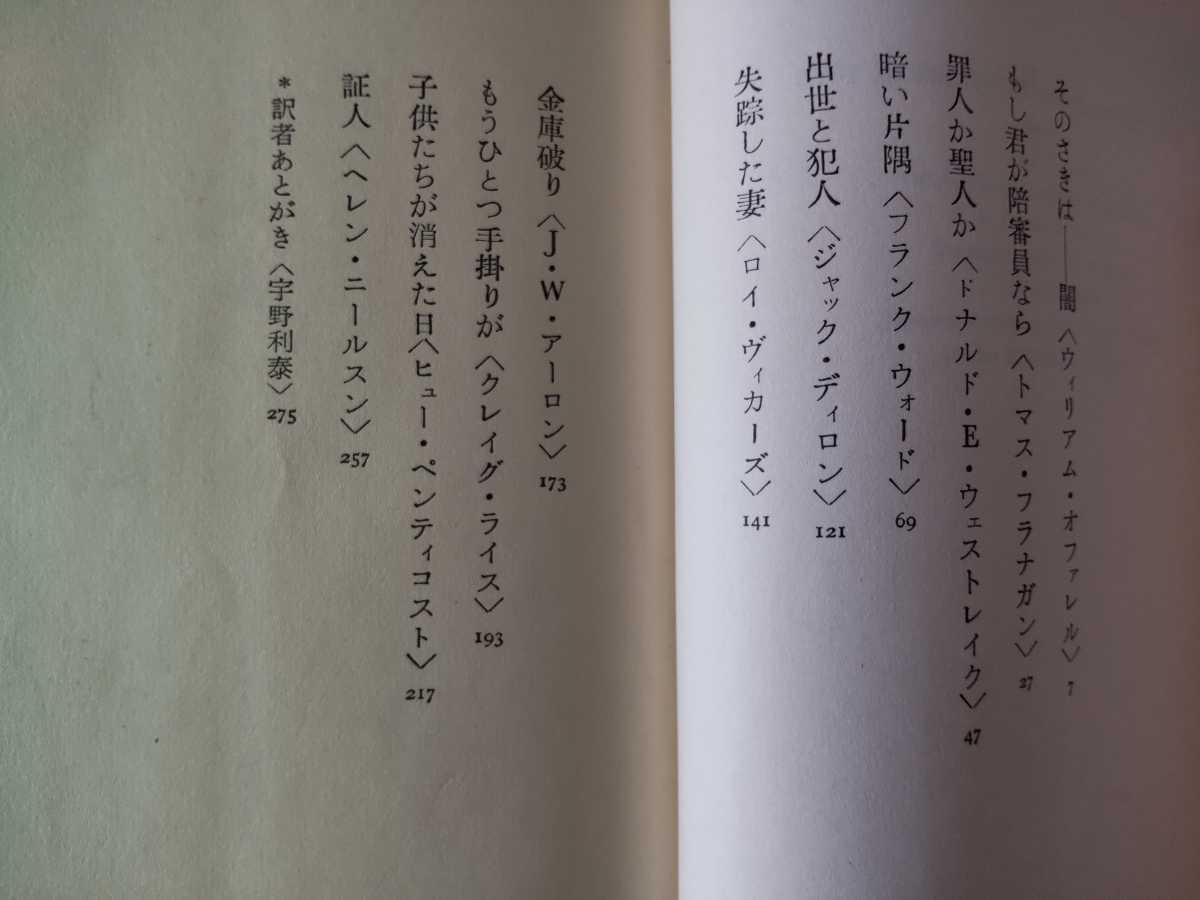 そのさきは――闇〈ウィリアム・オファレル〉 7
もし君が陪審員なら〈トマス・フラナガン〉 27
罪人か聖人か〈ドナルド・E・ウェストレイク〉 47
暗い片隅〈フランク・ウォード〉 69
出世と犯人〈ジャック・ディロン〉 121
失踪した妻〈ロイ・ヴィカーズ〉 141
金庫破り〈J・W・アーロン〉 173
もうひとつ手掛りが〈クレイグ・ライス〉 193
子供たちが消えた日〈ヒュー・ペンティコスト〉 217
証人〈ヘレン・ニールスン〉 257
*訳者あとがき〈宇野利泰〉 275